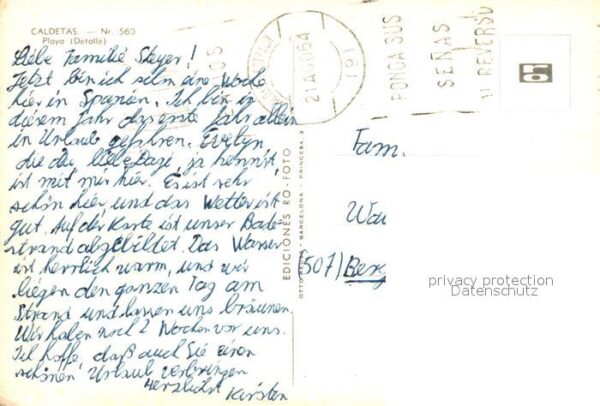 CALDETAS. — Nr. 560
Playa (Detalle)
Liebe Familie Steyer!
Jetzt bin ich schon eine Woche
hier in Spanien. Ich bin in
diesem Jahr das erste Jahr allein
in Urlaub gefahren. Evelyn,
die du, liebe ja kennst,
ist mit mir hier. Es ist sehr
schön hier und das Wetter ist
gut. Auf der Karte ist unser Bade-
strand abgebildet. Das Wasser
ist herrlich warm, und wir
liegen den ganzen Tag am
Strand und lassen uns bräunen.
Wir haben noch 2 Wochen vor uns.
Ich hoffe, daß auch Sie einen
schönen Urlaub verbringen
Herzlichst Kirsten
EDICIONES RO-FOTO
BARCELONA - PRINCESA
21 AGO 64
PONGA SUS
SEÑAS
AL REVERSO
Fam.
(507) Berg
privacy protection
Datenschutz